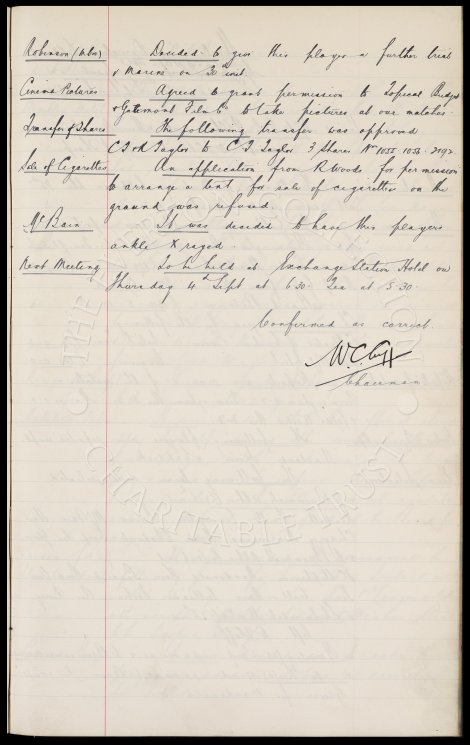 Robinson Decided to give this player a further trial
v Marine on 30 inst
Cinema Pictures Agreed to grant permission to Topical Budget
& Gaumont Film Co to take pictures at our matches.
Transfer of Shares The following transfer was approved
C J & A Taylor to C. J. Taylor 3 Shares Nos 1055. 1056. 2192
Sale of Cigarettes An application from R Woods for permission
to arrange a tent for sale of cigarettes on the
ground was refused.
McBain It was decided to have this players
ankle X rayed.
Next Meeting To be held at Exchange Station Hotel on
Thursday 4th Sept at 6 30. Tea at 5.30.
Confirmed as correct.
W.C. Cuff
Chairman
CHARITABLE TRUST